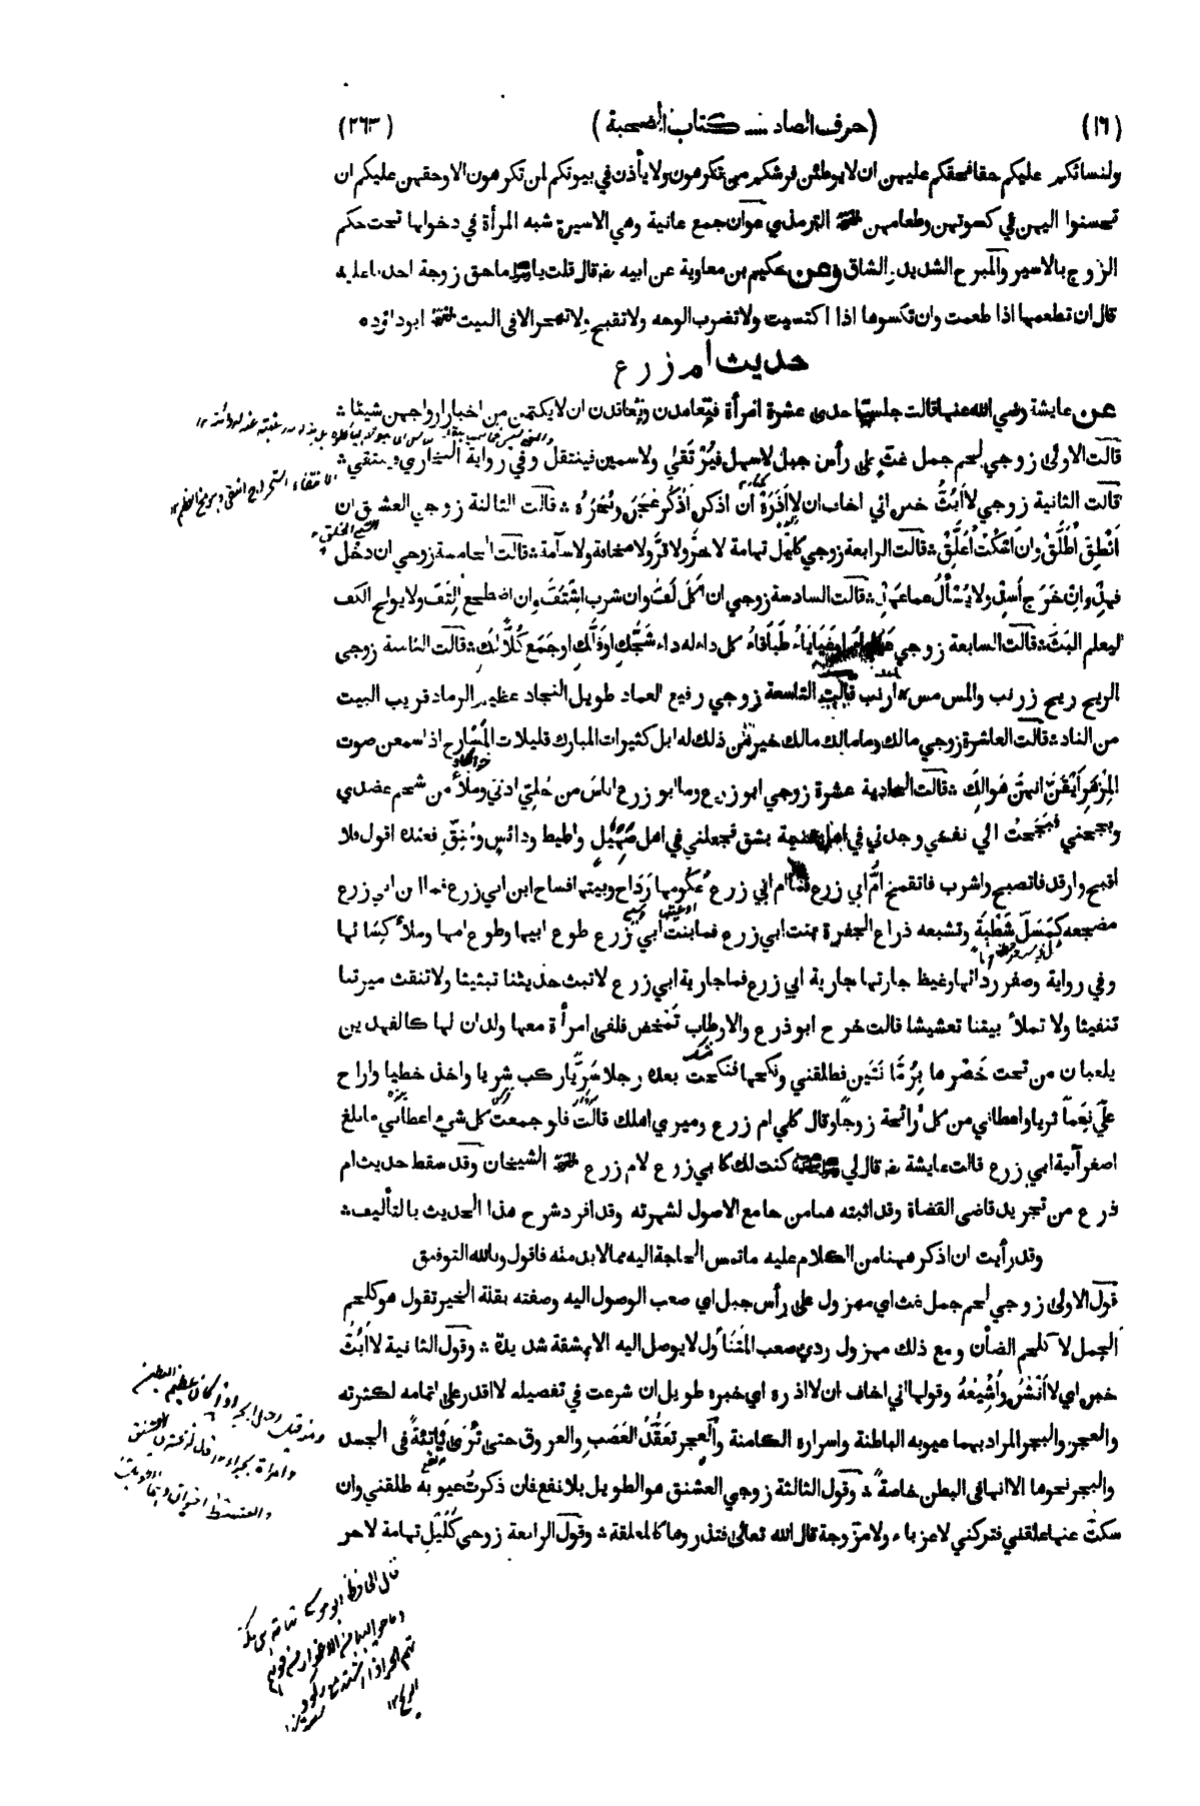 (١٦) (حرف الصاد ـــ كتاب الصحبة) (٢٦٣)
ولنسائكم عليكم حقا فحقكم عليهن ان لا يوطئن فرشكم من تكرهون ولا يأذن في بيوتكم لمن تكرهون الا وحقهن عليكم ان
تحسنوا اليهن في كسوتهن وطعامهن الترمذي عوان جمع عانية وهي الاسيرة شبه المرأة في دخولها تحت حكم
الزوج بالاسير والمبرح الشديد الشاق وعن حكيم بن معاوية عن ابيه قال قلت يا ما حق زوجة احدنا عليه
قال ان تطعمها اذا طعمت وان تكسوها اذا اكتسيت ولا تضرب الوجه ولا تقبح ولا تهجر الا في البيت ابو داؤد ه
حديث أم زرع
عن عايشة رضي الله عنها قالت جلست احدى عشرة امرأة فتعاهدن وتعاقدن ان لا يكتمن من اخبار ازواجهن شيئا
قالت الاولى زوجي لحم جمل غث على رأس جبل لا سهل فيرتقى ولا سمين فينتقل وفي رواية البخاري وينتقي
قالت الثانية زوجي لا ابث خبره اني اخاف ان لا اذره ان اذكره اذكر عجره وبجره قالت الثالثة زوجي العشنق ان
انطق اطلق وان اسكت اعلق قالت الرابعة زوجي كليل تهامة لا حر ولا قر ولا مخافة ولا سآمة قالت الخامسة زوجي ان دخل
فهد وان خرج اسد ولا يسأل عما عهد قالت السادسة زوجي ان اكل لف وان شرب اشتف وان اضطجع التف ولا يولج الكف
ليعلم البث قالت السابعة زوجي عياياء طباقاء كل داء له داء شجك او فلك او جمع كلا لك قالت الثامنة زوجي
الريح ريح زرنب والمس مس ارنب قالت التاسعة زوجي رفيع العماد طويل النجاد عظيم الرماد قريب البيت
من الناد قالت العاشرة زوجي مالك وما مالك مالك خير من ذلك له ابل كثيرات المبارك قليلات المسارح اذا سمعن صوت
المزهر ايقن انهن هوالك قالت الحادية عشرة زوجي ابو زرع وما ابو زرع اناس من حلي اذني وملأ من شحم عضدي
وبجحني فبجحت الي نفسي وجدني في اهل غنيمة بشق فجعلني في اهل صهيل واطيط ودائس ومنق فعنده اقول فلا
اقبح وارقد فاتصبح واشرب فاتقمح ام ابي زرع فما ام ابي زرع عكومها رداح وبيتها فساح ابن ابي زرع فما ابن ابي زرع
مضجعه كمسل شطبة وتشبعه ذراع الجفرة بنت ابي زرع فما بنت ابي زرع طوع ابيها وطوع امها وملأ كسائها
وفي رواية وصفر ردائها وغيظ جارتها جارية ابي زرع فما جارية ابي زرع لا تبث حديثنا تبثيثا ولا تنقث ميرتنا
تنقيثا ولا تملأ بيتنا تعشيشا قالت خرج ابو زرع والاوطاب تمخض فلقى امرأة معها ولدان لها كالفهدين
يلعبان من تحت خصرها برمانتين فطلقني ونكحها فنكحت بعده رجلا سريا ركب شريا واخذ خطيا واراح
علي نعما ثريا واعطاني من كل رائحة زوجا وقال كلي ام زرع وميري اهلك قالت فلو جمعت كل شيء اعطاني ما بلغ
اصغر آنية ابي زرع قالت عايشة قال لي كنت لك كابي زرع لام زرع الشيخان وقد سقط حديث ام
زرع من تجريد قاضي القضاة وقد اثبته ههنا من جامع الاصول لشهرته وقد افرد شرح هذا الحديث بالتأليف
وقد رأيت ان اذكر ههنا من الكلام عليه ما تمس الحاجة اليه مما لا بد منه فاقول وبالله التوفيق
قول الاولى زوجي لحم جمل غث اي مهزول على رأس جبل اي صعب الوصول اليه وصفته بقلة الخير تقول هو كلحم
الجمل لا كلحم الضأن ومع ذلك مهزول ردي صعب المتناول لا يوصل اليه الا بمشقة شديدة وقول الثانية لا ابث
خبره اي لا انشره واشيعه وقولها اني اخاف ان لا اذره اي خبره طويل ان شرعت في تفصيله لا اقدر على اتمامه لكثرته
والعجر والبجر المراد بهما عيوبه الباطنة واسراره الكامنة والعجر تعقد العصب والعروق حتى ترى ناتئة في الجسد
والبجر نحوها الا انها في البطن خاصة وقول الثالثة زوجي العشنق هو الطويل بلا نفع فان ذكرت عيوبه طلقني وان
سكت عنها علقني فتركني لا عزباء ولا مزوجة قال الله تعالى فتذروها كالمعلقة وقول الرابعة زوجي كليل تهامة لا حر